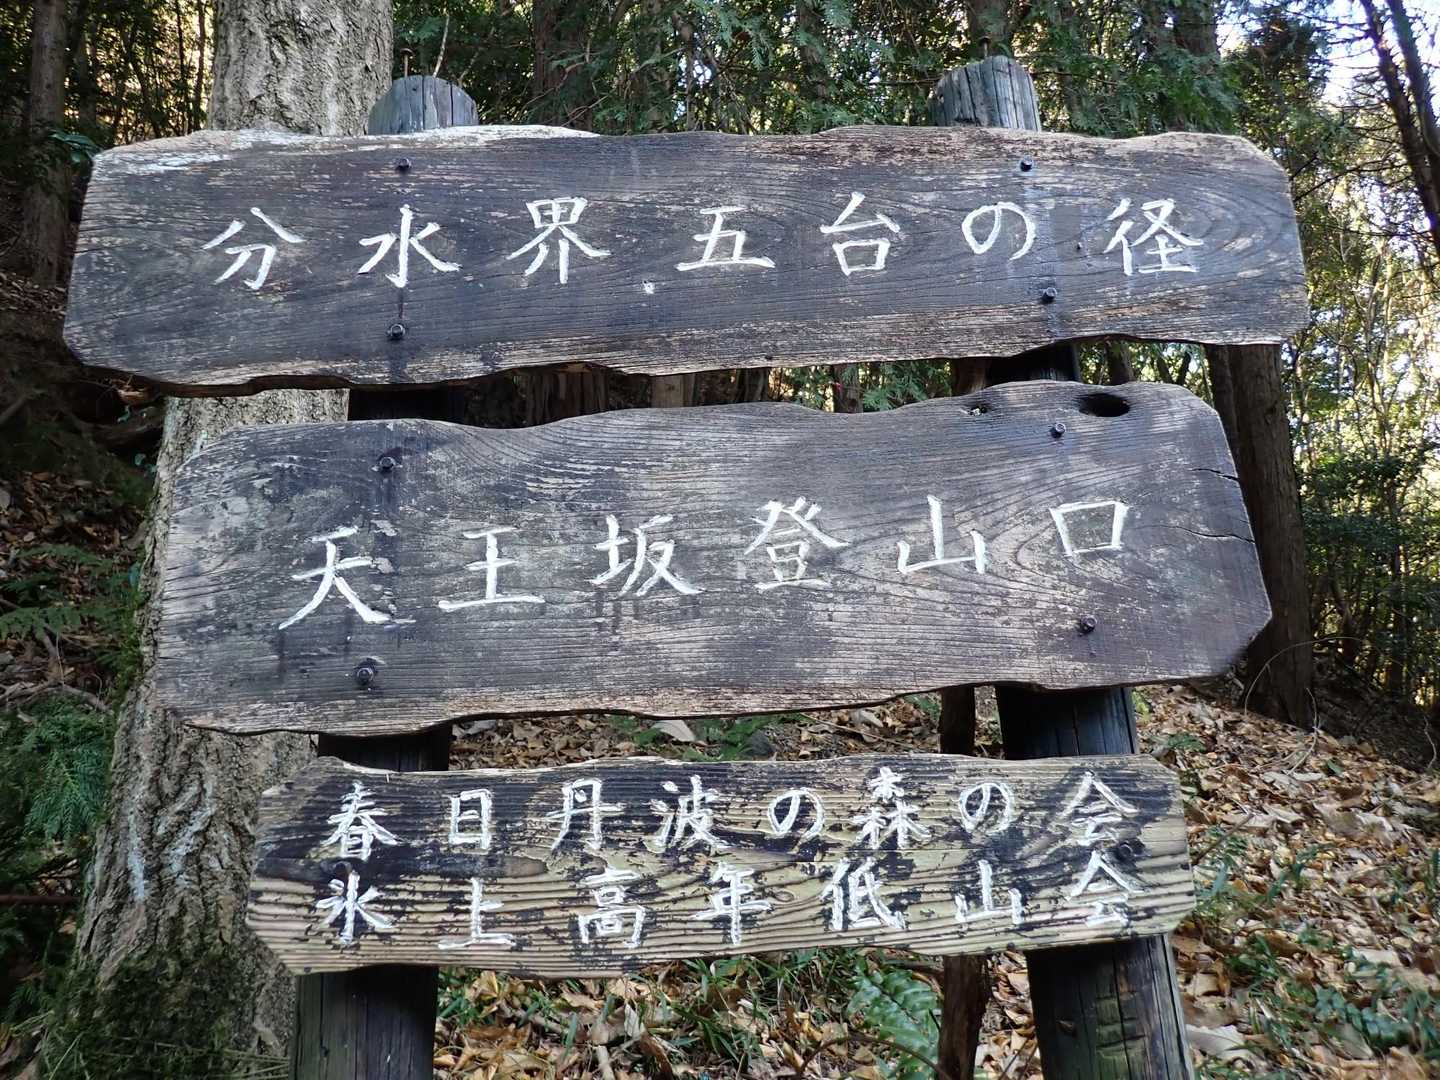 分水界五台の径
天王坂登山口
春日丹波の森の会
氷上高年低山会